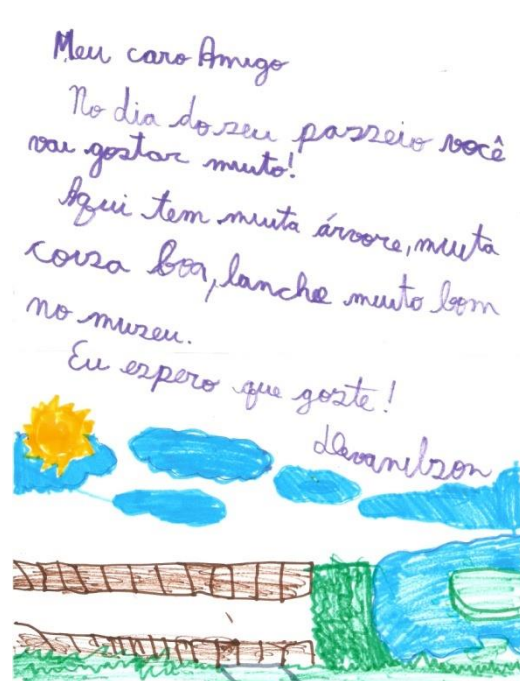 Meu caro Amigo
No dia do seu passeio você
vai gostar muito!
Aqui tem muita árvore, muita
coisa boa, lanche muito bom
no museu.
Eu espero que goste!
Devanilson